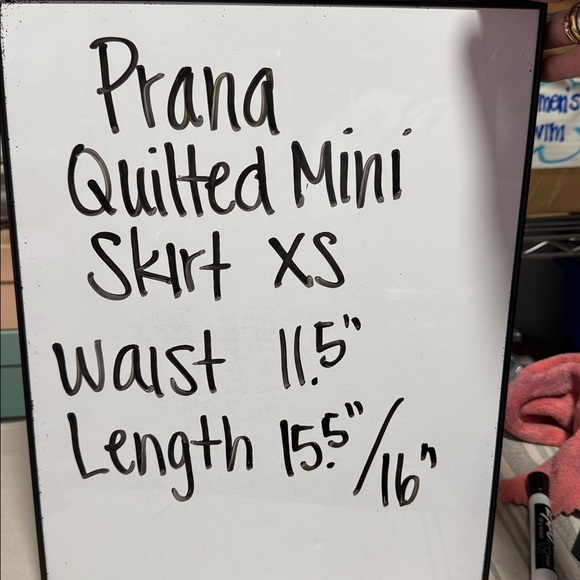 Prana
Quilted Mini
Skirt XS
Waist 11.5"
Length 15.5"/16"
men's